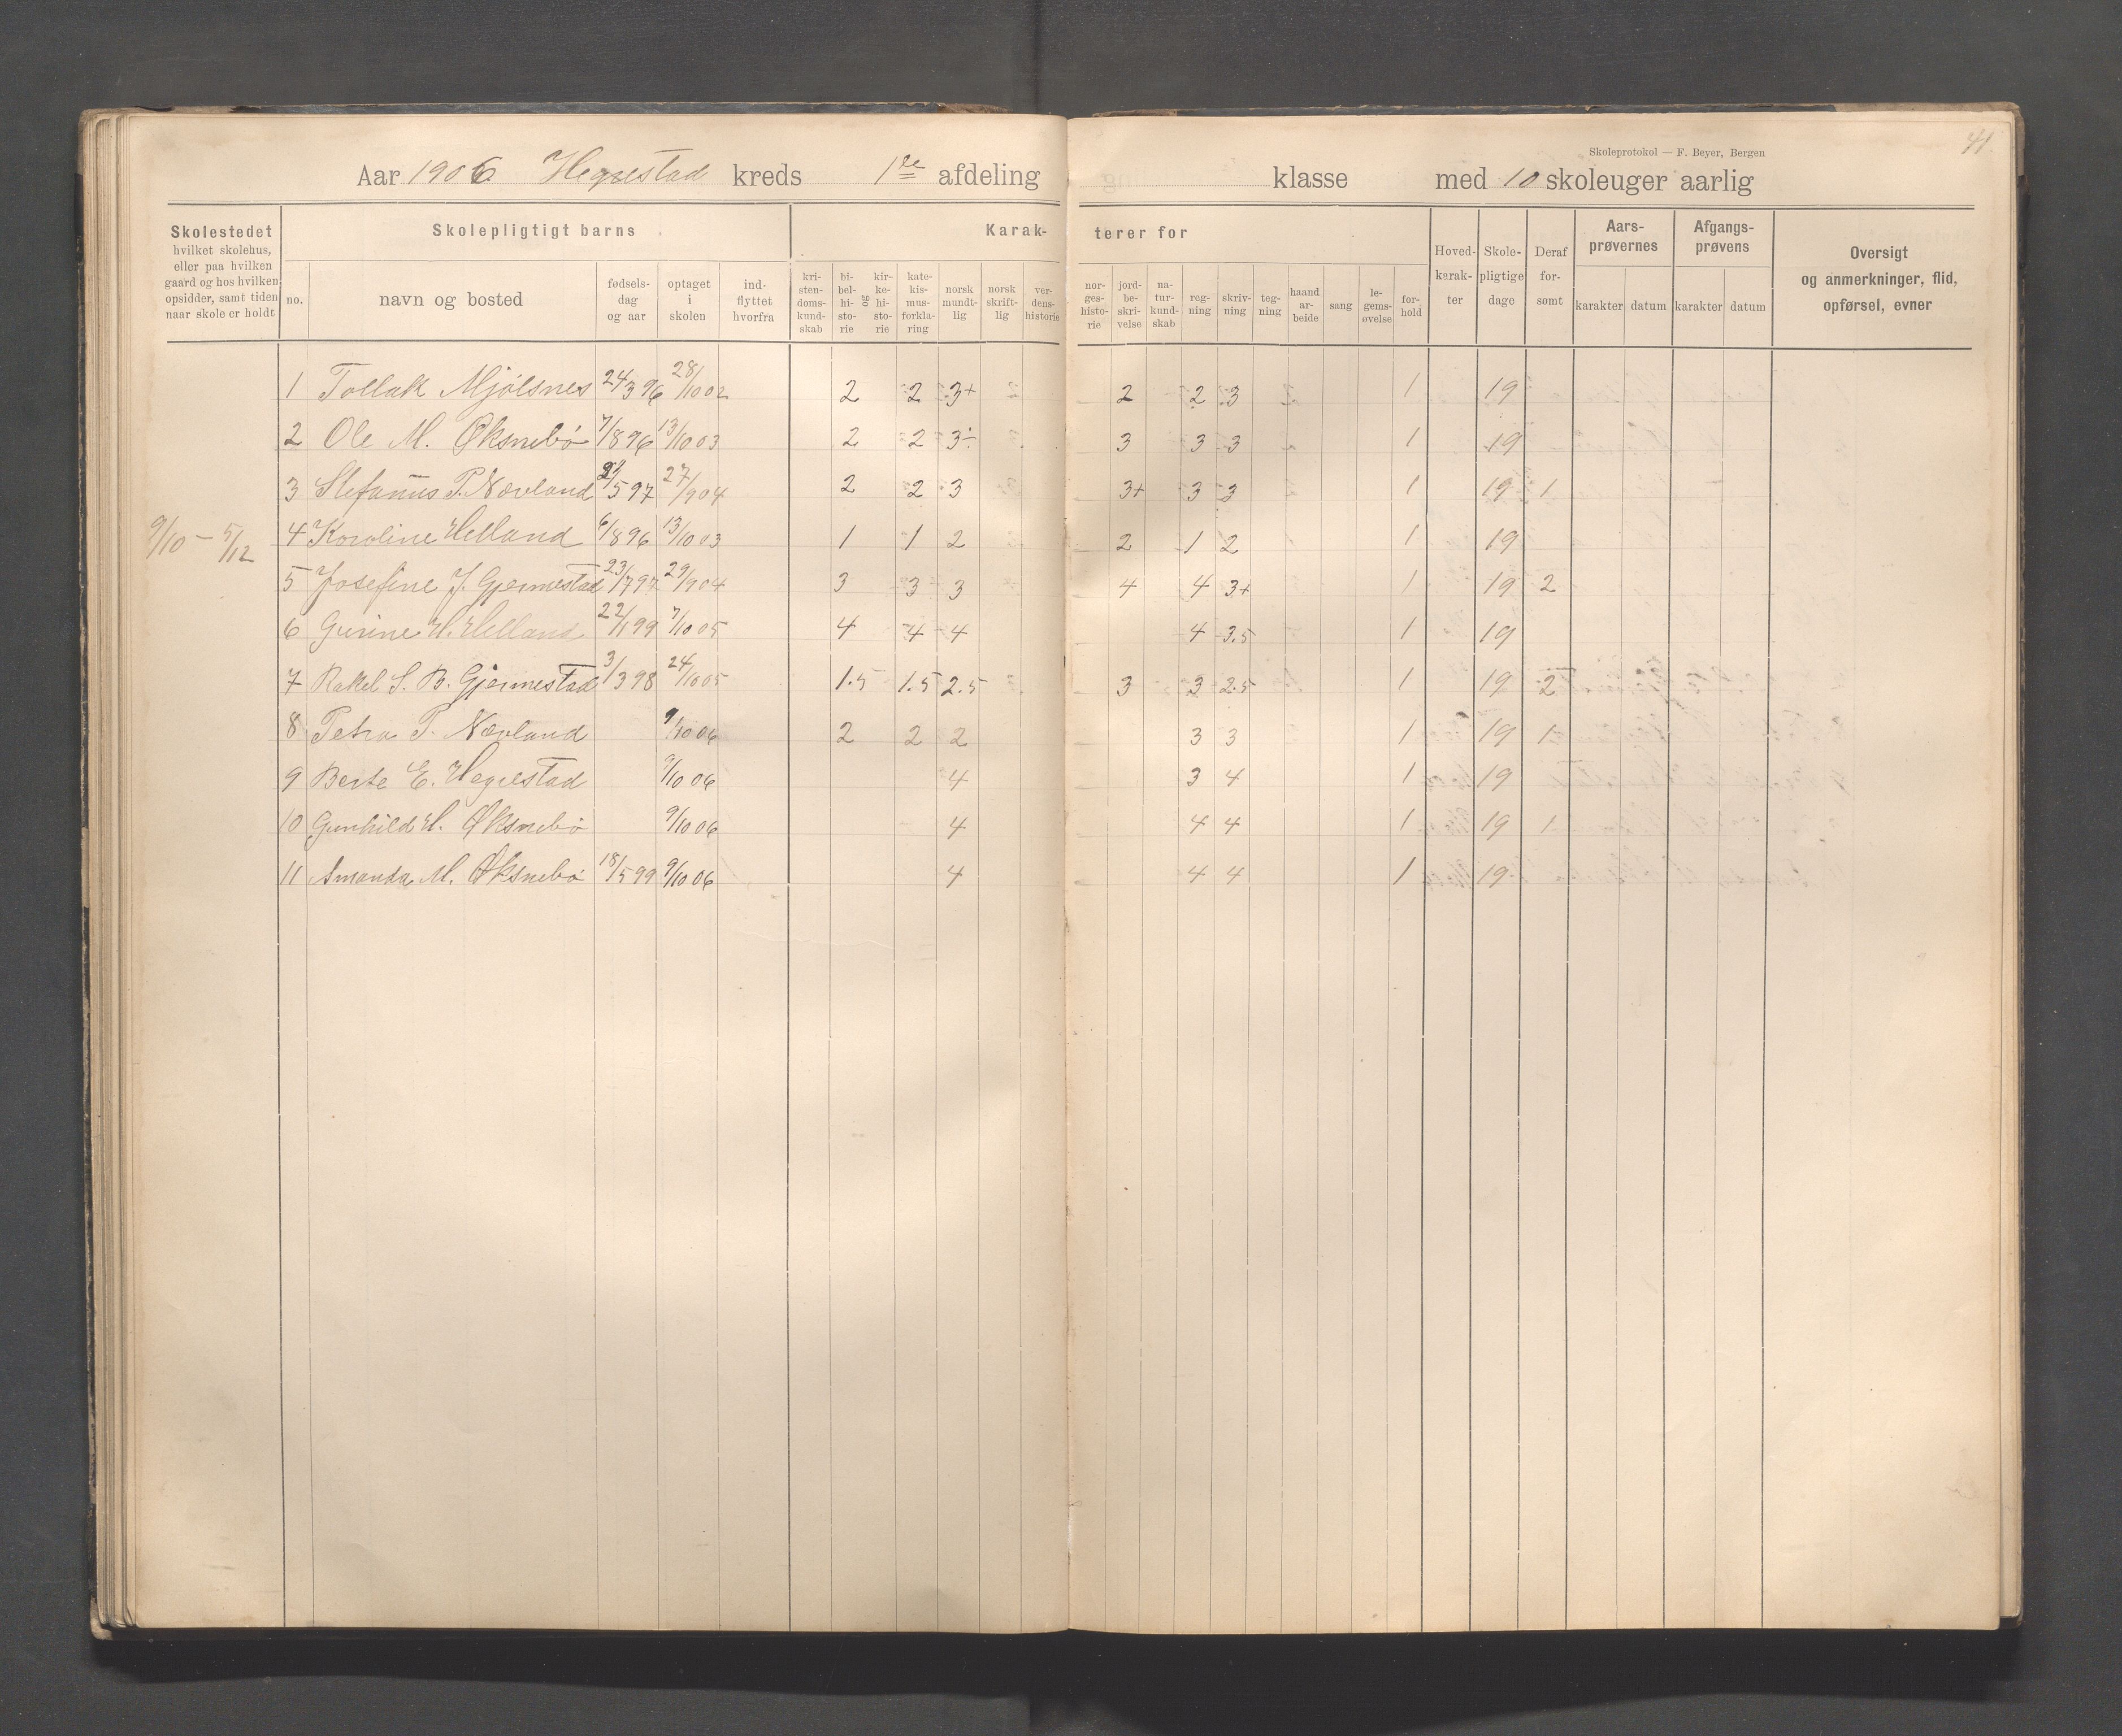 41.
Skoleprotokol — F. Beyer, Bergen
Aar 1906 Hegrestad kreds 1ste afdeling klasse med 10 skoleuger aarlig
Skolestedet hvilket skolehus, eller paa hvilken gaard og hos hvilken opsidder, samt tiden naar skole er holdt
Skolepligtigt barns
no. navn og bosted fødsels-dag og aar optaget i skolen ind-flyttet hvorfra
Karak- terer for
kri-sten-doms-kund-skab bi-bel-hi-sto-rie og kir-ke-hi-sto-rie kate-kis-mus-forkla-ring norsk mundt-lig norsk skrift-lig ver-dens-historie nor-ges-histo-rie jord-be-skri-velse na-tur-kund-skab reg-ning skriv-ning teg-ning haand ar-beide sang le-gems-øvelse for-hold
Hoved-karak-ter Skole-pligtige dage Deraf for-sømt
Aars-prøvernes karakter datum
Afgangs-prøvens karakter datum
Oversigt og anmerkninger, flid, opførsel, evner
1 Tollak Mjølsnes 24/3 96 28/10 02 2 2 3+ 2 2 3 1 19
2 Ole M. Øksnebø 7/8 96 13/10 03 2 2 3÷ 3 3 3 1 19
3 Stefanus P. Nævland /5 97 27/9 04 2 2 3 3+ 3 3 1 19 1
9/10 – 5/12
4 Karoline Helland 6/8 96 13/10 03 1 1 2 2 1 2 1 19
5 Josefine J. Gjermestad 23/7 97 29/9 04 3 3 3 4 4 3+ 1 19 2
6 Gurine H. Helland 22/1 99 7/10 05 4 4 4 4 3.5 1 19
7 Rakel S. B. Gjermestad 3/3 98 24/10 05 1.5 1.5 2.5 3 3 2.5 1 19 2
8 Petra P. Nævland 9/10 06 2 2 2 3 3 1 19 1
9 Berte E. Hegrestad 9/10 06 4 3 4 1 19
10 Gunhild H. Øksnebø 9/10 06 4 4 4 1 19 1
11 Amanda M. Øksnebø 18/5 99 9/10 06 4 4 4 1 19